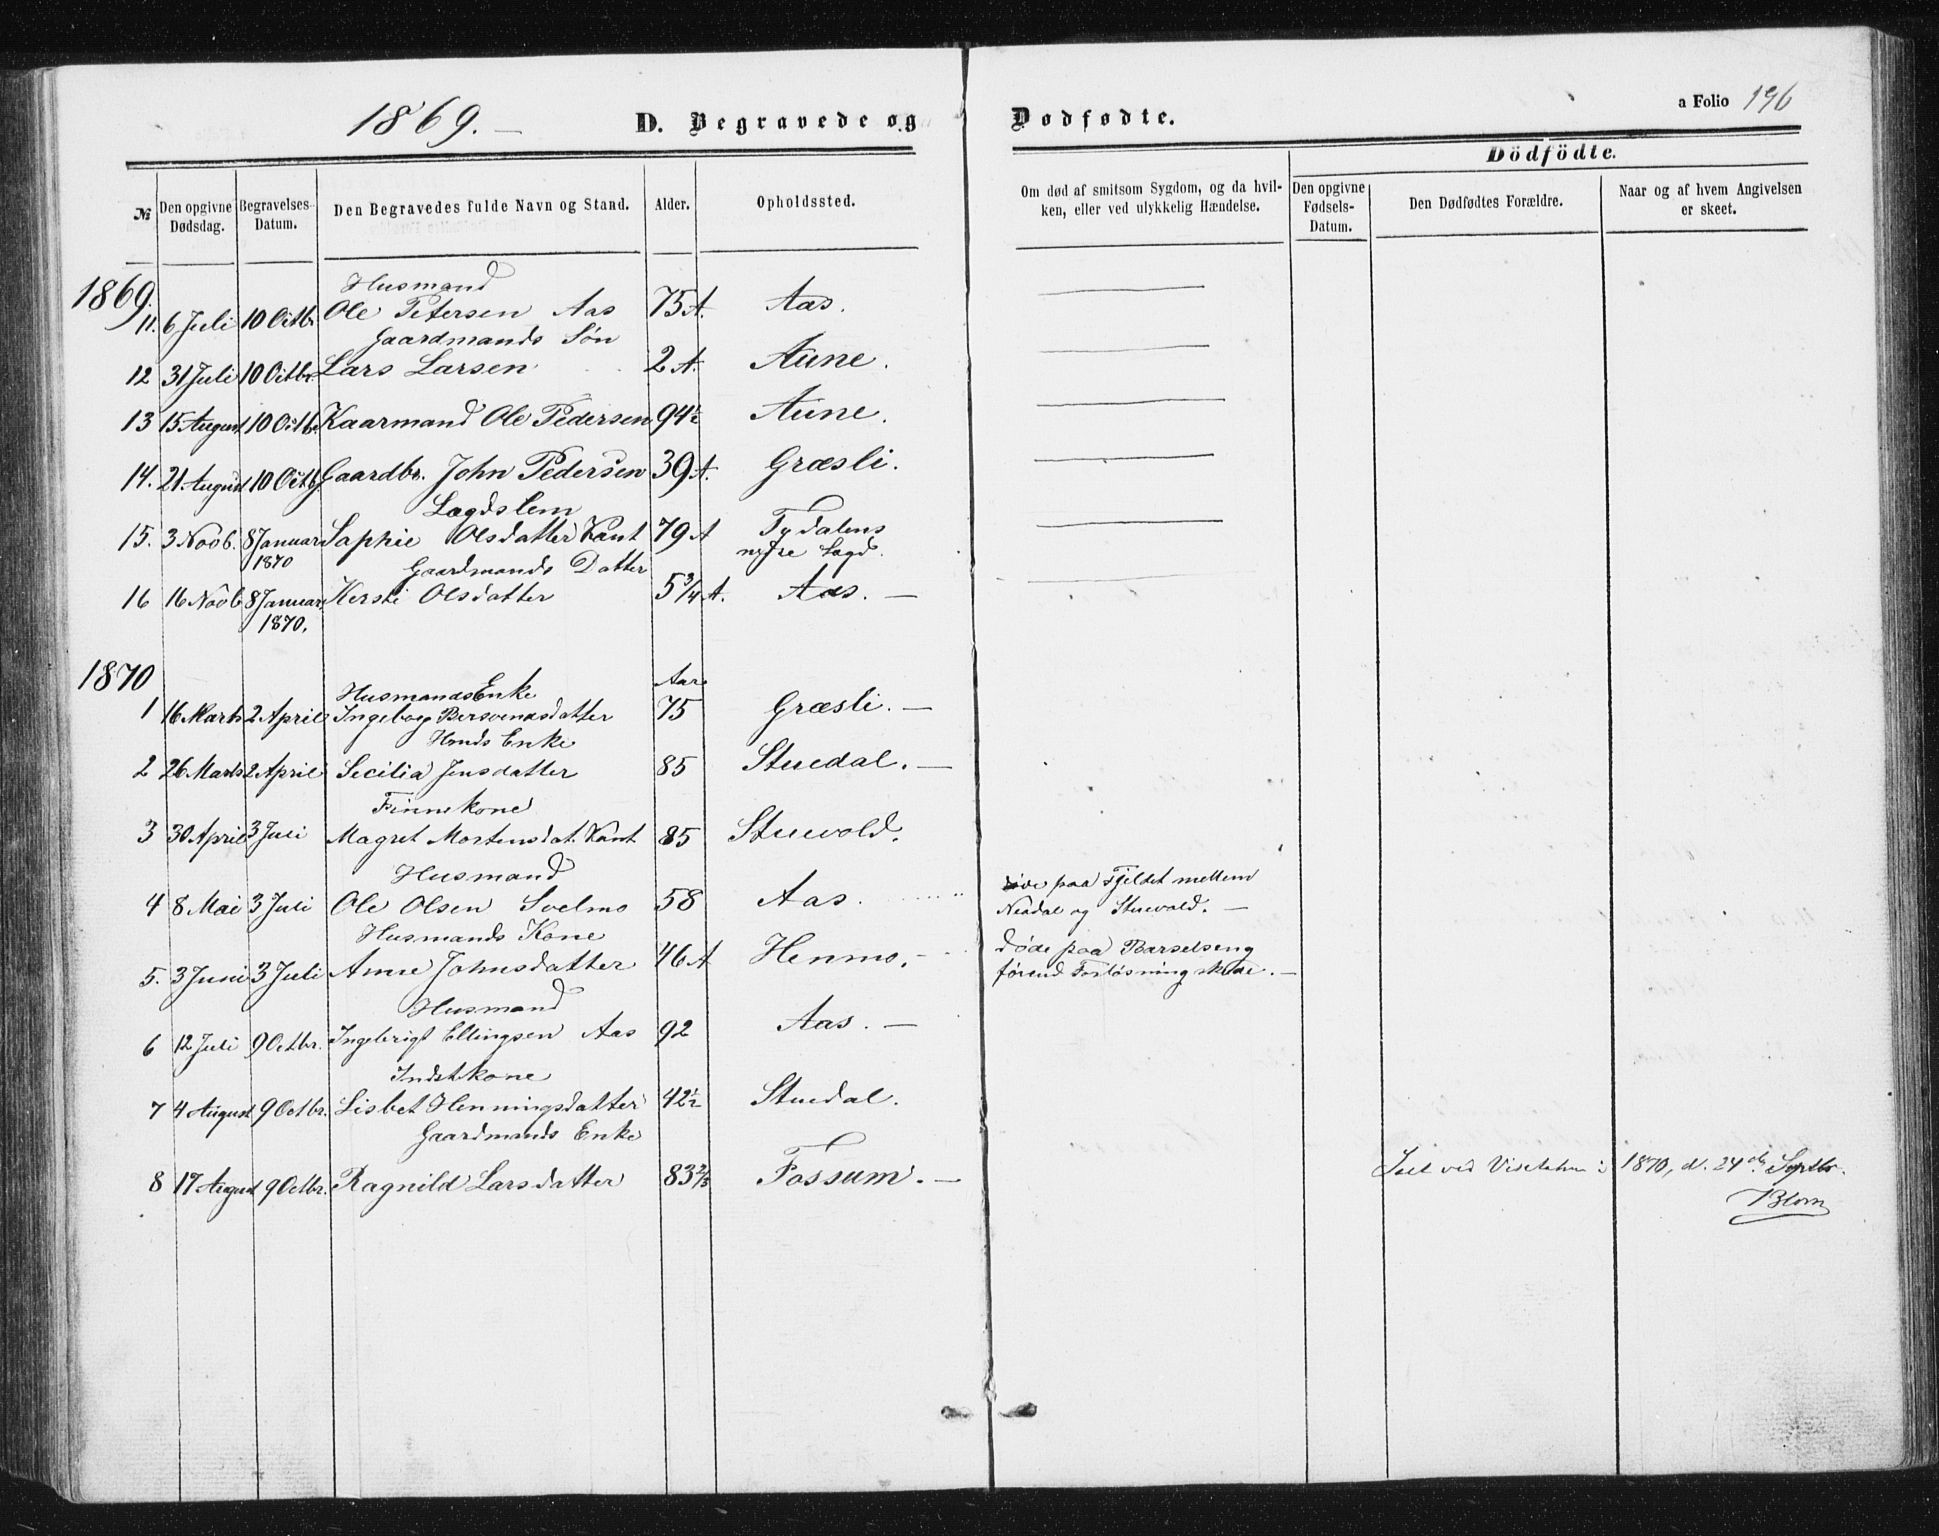 1869. —
D. Begravede og Dødfødte.
a Folio 196
Dödfödte.
№
Den opgivne Dødsdag.
Begravelses-Datum.
Den Begravedes fulde Navn og Stand.
Alder.
Opholdssted.
Om død af smitsom Sygdom, og da hvil-
ken, eller ved ulykkelig Hændelse.
Den opgivne Fødsels-Datum.
Den Dødfødtes Forældre.
Naar og af hvem Angivelsen
er skeet.
1869.
Husmand
11. 6 Juli 10 Octbr. Ole Petersen Aas 75 A. Aas.
Gaardmands Søn
12 31 Juli 10 Octbr. Lars Larsen 2 A. Aune.
13 15 August 10 Octb. Kaarmand Ole Pedersen 94½ Aune.
14. 21 August 10 Octb. Gaardbr. John Pedersen 39 A. Græsli.
Lagdslem
15. 3 Novb. 8 Januar 1870 Saphie Olsdatter Kant 79 A Tydalens nedre Lagd.
Gaardmands Datter
16 16 Novb 8 Januar 1870. Kersti Olsdatter 5¾ A. Aas. —
1870
Aar
Husmands Enke
1 16 Marts 2 April Ingeborg Bersvendsdatter 75 Græsli. —
Hmds Enke
2 26 Marts 2 April Secilia Jensdatter 85 Stuedal. —
Finnekone
3 30 April 3 Juli Magret Mortensdat. Kant 85 Stuevold.
Husmand
4 8 Mai 3 Juli Ole Olsen Svelmo 58 Aas. døde paa Fjeldet mellem
Nesdal og Stuevold. —
Husmands Kone
5. 3 Juni 3 Juli Anne Johnsdatter 46 A Henmo. — døde paa Barselseng
førend Forløsning skede. —
Husmand
6 12 Juli 9 Octbr. Ingebrigt Ellingsen Aas 92 Aas. —
Indstkone
7 4 August 9 Octbr. Lisbet Henningsdatter 42½ Stuedal.
Gaardmands Enke
8 17 August 9 Octbr. Ragnild Larsdatter 83⅔ Fossum. —
Seet ved Visitatsen i 1870, d. 24de Septbr.
Blom